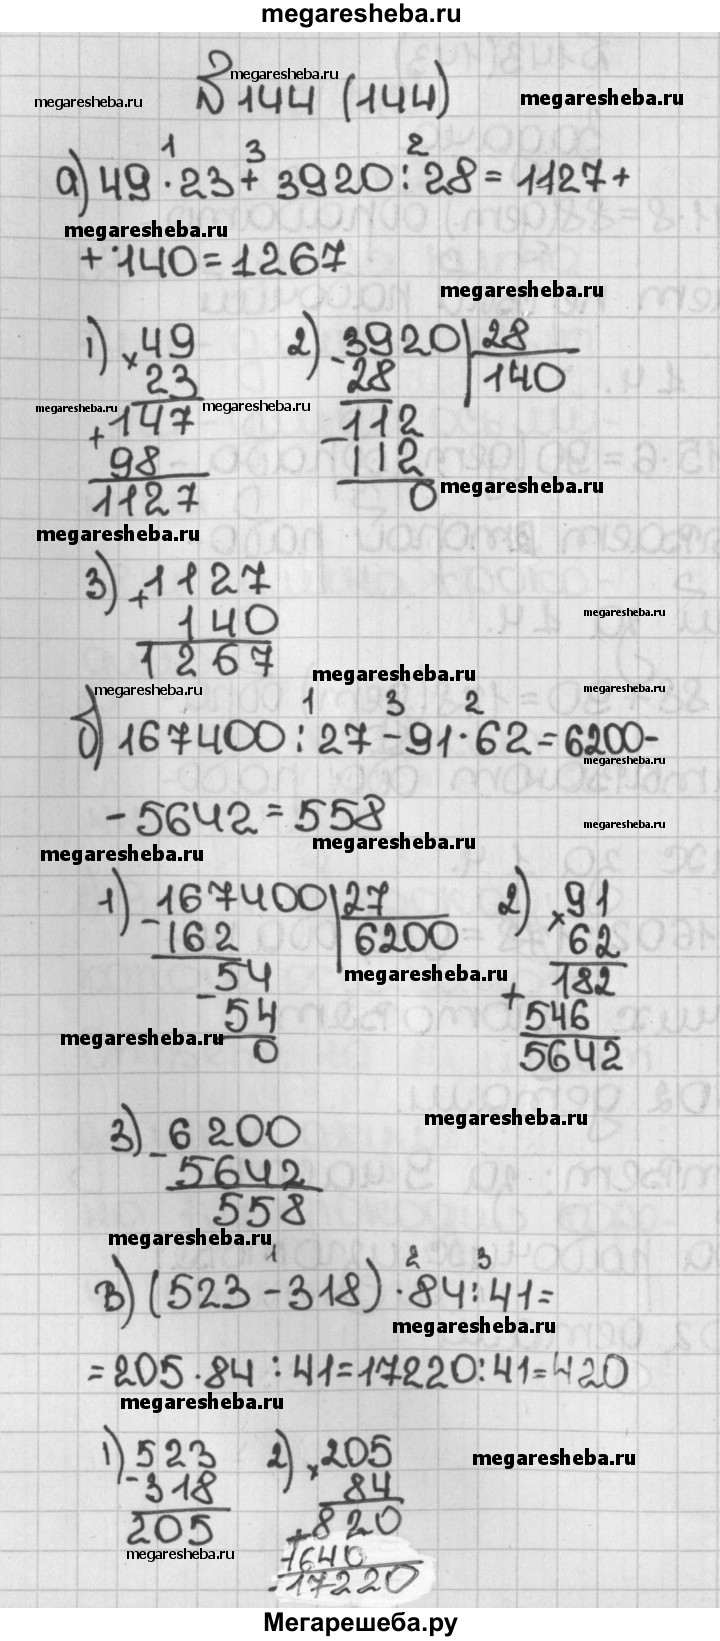 megaresheba.ru
№144 (144)
megaresheba.ru
megaresheba.ru
megaresheba.ru
1 3 2
а) 49·23+3920:28=1127+
megaresheba.ru
+140=1267
megaresheba.ru
1) ×49 2) -3920 28
23 28 140
megaresheba.ru +147 megaresheba.ru -112
98 112
1127 0
megaresheba.ru
megaresheba.ru
3) +1127
140
1267
megaresheba.ru
megaresheba.ru
megaresheba.ru
1 3 2
б) 167400:27-91·62=6200-
megaresheba.ru
-5642=558
megaresheba.ru
megaresheba.ru
megaresheba.ru
1) -167400 27 2) ×91
162 6200 62
-54 +182
54 546
0 5642
megaresheba.ru
megaresheba.ru
3) -6200
5642
558
megaresheba.ru
megaresheba.ru
1 2 3
в) (523-318)·84:41=
megaresheba.ru
=205·84:41=17220:41=420
megaresheba.ru
1) -523 2) ×205
318 84
205 +820
1640
17220
megaresheba.ru
megaresheba.ru
Мегарешеба.ру